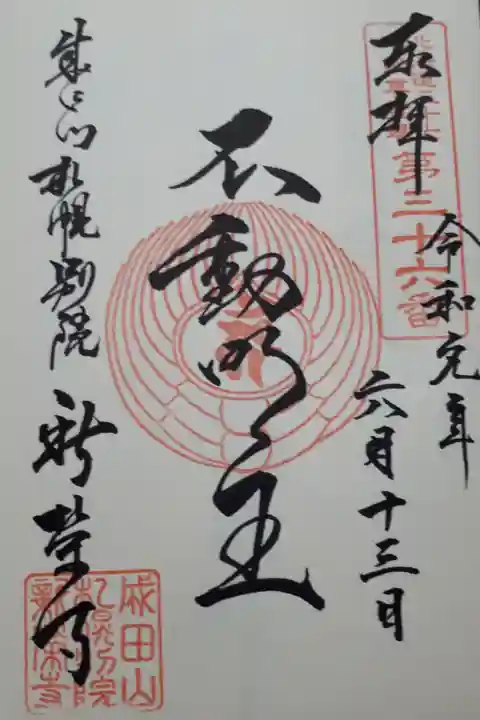 奉拝
第三十六番
令和元年
六月十三日
不動明王
成田山札幌別院
新栄寺
成田山
札幌分院
新栄寺